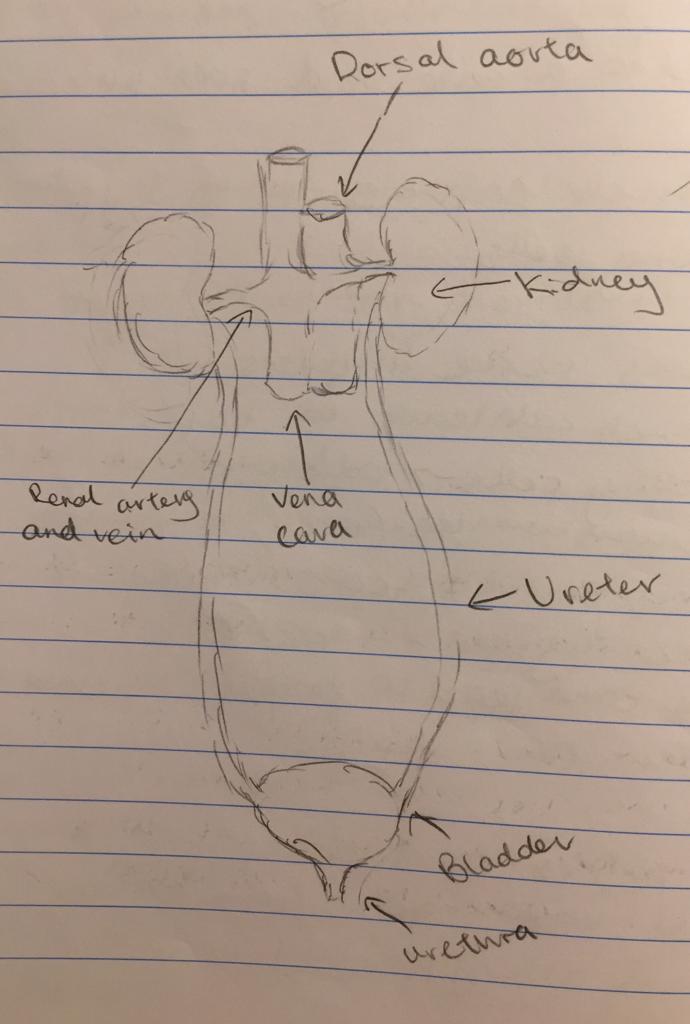 Dorsal aorta
Kidney
Renal artery
and vein
Vena
cava
Ureter
Bladder
urethra